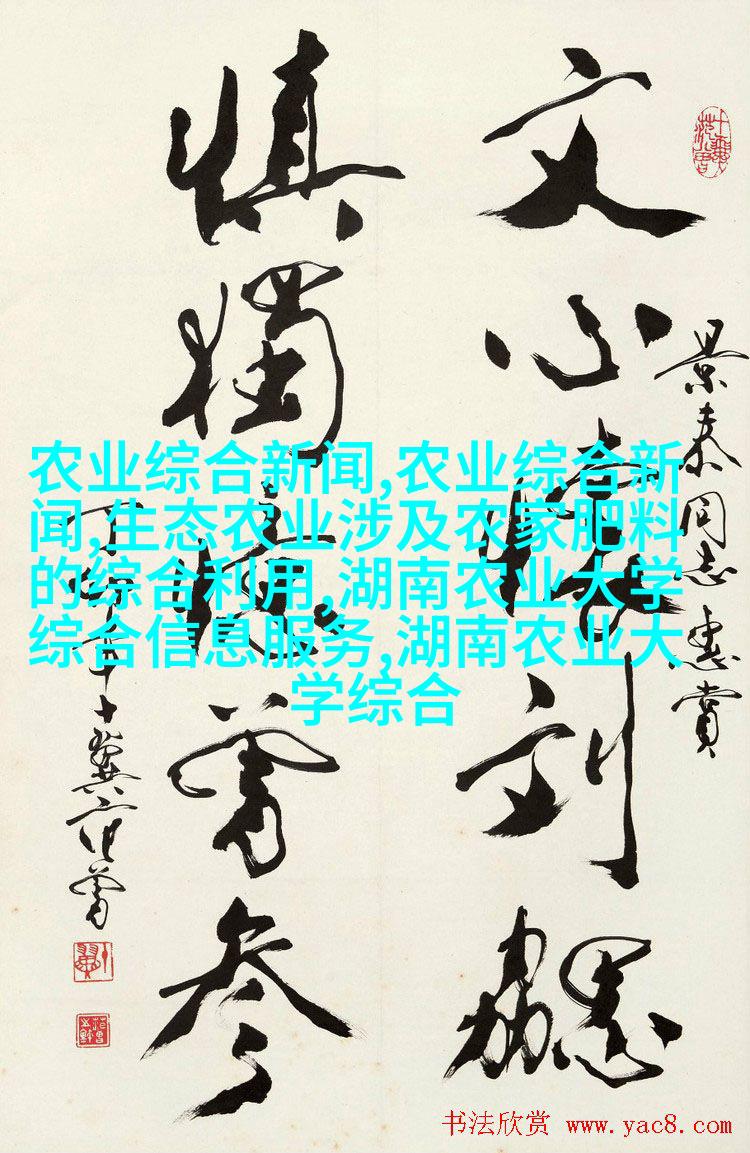 景泰同志惠賞
文心刘勰
慎獨曾參
十翼范曾
农业综合新闻,农业综合新
闻,生态农业涉及农家肥料
的综合利用,湖南农业大学
综合信息服务,湖南农业大
学综合
书法欣赏 www.yac8.com